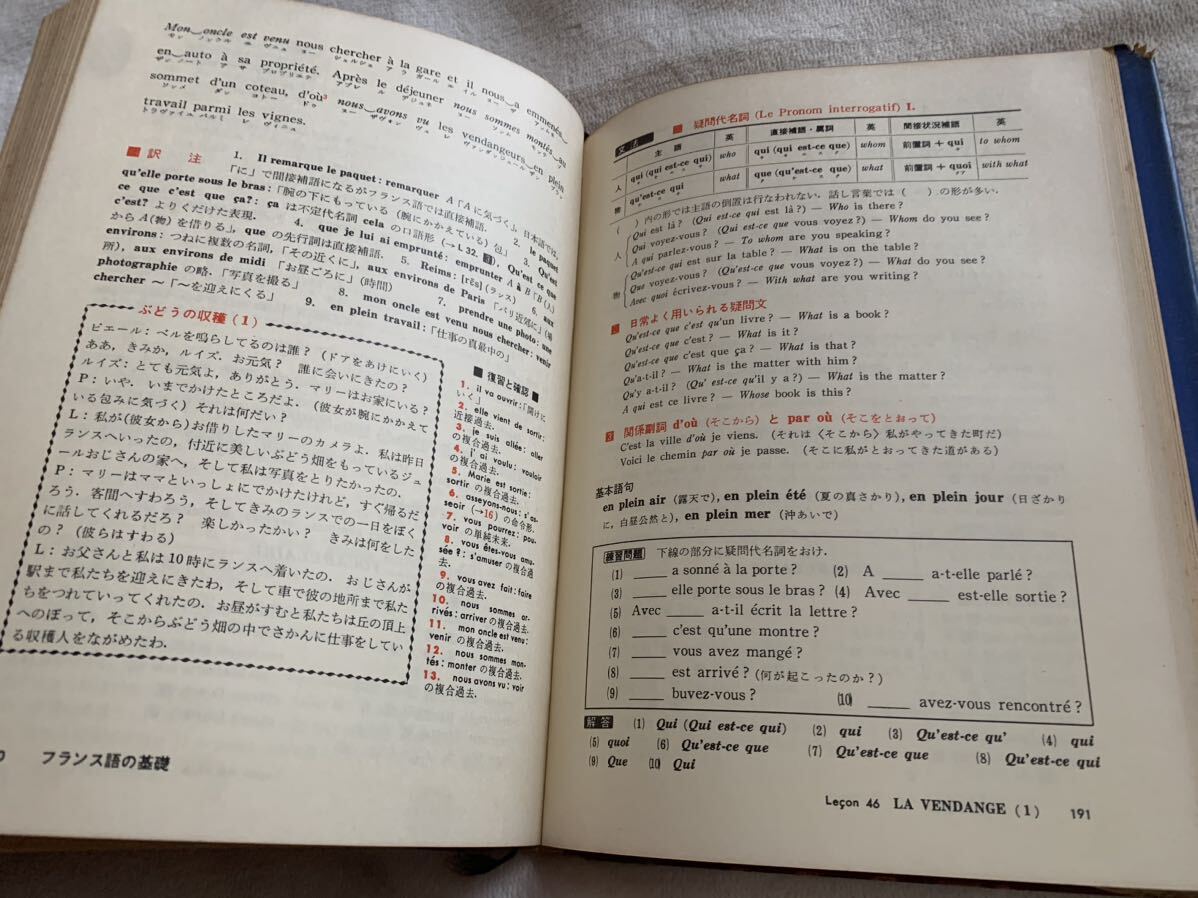 Mon oncle est venu nous chercher à la gare et il nous a emmenés,
en auto à sa propriété. Après le déjeuner nous sommes montés au
sommet d'un coteau, d'où³ nous avons vu les vendangeurs en plein
travail parmi les vignes.
■ 訳 注 1. Il remarque le paquet : remarquer A「Aに気づく」, 日本語では,
「に」で間接補語になるがフランス語では直接補語. 2. le paquet
qu'elle porte sous le bras :「腕の下にもっている(腕にかかえている)包」 3. Qu'est-
ce que c'est que ça? : ça は不定代名詞 cela の口語形 (→L 32. 3). Qu'est ce que
c'est? よりくだけた表現. 4. que je lui ai emprunté : emprunter A à B「B(人)
からA(物)を借りる」, que の先行詞は直接補語. 5. Reims : [rɛ̃s] (ランス) 6. aux
environs : つねに複数の名詞,「その近くに」, aux environs de Paris「パリ近郊に」(場
所), aux environs de midi「お昼ごろに」(時間) 7. prendre une photo : une
photographie の略,「写真を撮る」 8. mon oncle est venu nous chercher : venir
chercher ~「~を迎えにくる」 9. en plein travail :「仕事の真最中の」
ぶどうの収穫 (1)
ピエール:ベルを鳴らしてるのは誰?(ドアをあけにいく)
ああ, きみか, ルイズ. お元気? 誰に会いにきたの?
ルイズ:とても元気よ, ありがとう. マリーはお家にいる?
P:いや. いまでかけたところだよ. (彼女が腕にかかえて
いる包みに気づく) それは何だい?
L:私が(彼女から)お借りしたマリーのカメラよ. 私は昨日
ランスへいったの, 付近に美しいぶどう畑をもっているジュ
ールおじさんの家へ, そして私は写真をとりたかったの.
P:マリーはママといっしょにでかけたけれど, すぐ帰るだ
ろう. 客間へすわろう, そしてきみのランスでの一日をぼく
に話してくれるだろ? 楽しかったかい? きみは何をした
の? (彼らはすわる)
L:お父さんと私は10時にランスへ着いたの. おじさんが
駅まで私たちを迎えにきたわ, そして車で彼の地所まで私た
ちをつれていってくれたの. お昼がすむと私たちは丘の頂上
へのぼって, そこからぶどう畑の中でさかんに仕事をしてい
る収穫人をながめたわ.
■ 復習と確認 ■
1. il va ouvrir :「開けに
いく」
2. elle vient de sortir :
近接過去.
3. je suis allée : aller
の複合過去.
4. j'ai voulu : vouloir
の複合過去.
5. Marie est sortie :
sortir の複合過去.
6. asseyons-nous : s'as-
seoir (→16) の命令形.
7. vous pourrez : pou-
voir の単純未来.
8. vous êtes-vous amu-
sée? : s'amuser の複合過
去.
9. vous avez fait : faire
の複合過去.
10. nous sommes ar-
rivés : arriver の複合過去.
11. mon oncle est venu :
venir の複合過去.
12. nous sommes mon-
tés : monter の複合過去.
13. nous avons vu : voir
の複合過去.
0 フランス語の基礎
文法 ■ 疑問代名詞 (Le Pronom interrogatif) I.
主語 英 直接補語・属詞 英 間接状況補語 英
人 qui (qui est-ce qui) who qui (qui est-ce que) whom 前置詞 + qui to whom
物 qu'est-ce qui what que (qu'est-ce que) what 前置詞 + quoi with what
( )内の形では主語の倒置は行なわれない. 話し言葉では( )の形が多い.
人 Qui est là? (Qui est-ce qui est là?) — Who is there?
Qui voyez-vous? (Qui est-ce que vous voyez?) — Whom do you see?
A qui parlez-vous? — To whom are you speaking?
物 Qu'est-ce qui est sur la table? — What is on the table?
Que voyez-vous? (Qu'est-ce que vous voyez?) — What do you see?
Avec quoi écrivez-vous? — With what are you writing?
2 日常よく用いられる疑問文
Qu'est-ce que c'est qu'un livre? — What is a book?
Qu'est-ce que c'est? — What is it?
Qu'est-ce que c'est que ça? — What is that?
Qu'a-t-il? — What is the matter with him?
Qu'y a-t-il? (Qu'est-ce qu'il y a?) — What is the matter?
A qui est ce livre? — Whose book is this?
3 関係副詞 d'où (そこから) と par où (そこをとおって)
C'est la ville d'où je viens. (それは〈そこから〉私がやってきた町だ)
Voici le chemin par où je passe. (そこに私がとおってきた道がある)
基本語句
en plein air (露天で), en plein été (夏の真さかり), en plein jour (日ざかり
に, 白昼公然と), en plein mer (沖あいで)
練習問題 下線の部分に疑問代名詞をおけ.
(1) ____ a sonné à la porte? (2) A ____ a-t-elle parlé?
(3) ____ elle porte sous le bras? (4) Avec ____ est-elle sortie?
(5) Avec ____ a-t-il écrit la lettre?
(6) ____ c'est qu'une montre?
(7) ____ vous avez mangé?
(8) ____ est arrivé? (何が起こったのか?)
(9) ____ buvez-vous? (10) ____ avez-vous rencontré?
解答 (1) Qui (Qui est-ce qui) (2) qui (3) Qu'est-ce qu' (4) qui
(5) quoi (6) Qu'est-ce que (7) Qu'est-ce que (8) Qu'est-ce qui
(9) Que (10) Qui
Leçon 46 LA VENDANGE (1) 191